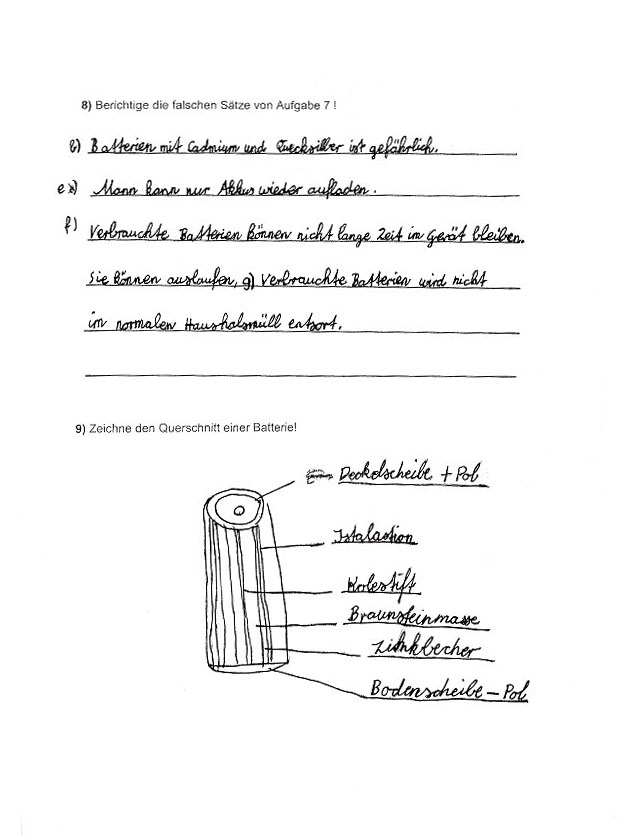 8) Berichtige die falschen Sätze von Aufgabe 7 !
b) Batterien mit Cadmium und Quecksilber ist gefährlich.
e) Mann kann nur Akkus wieder aufladen.
f) Verbrauchte Batterien können nicht lange Zeit im Gerät bleiben.
Sie können auslaufen, g) Verbrauchte Batterien wird nicht
im normalen Haushalsmüll entsort.
9) Zeichne den Querschnitt einer Batterie!
Deckelscheibe + Pol
Istalaction
Kolestift
Braunsteinmasse
Zinkbecher
Bodenscheibe – Pol